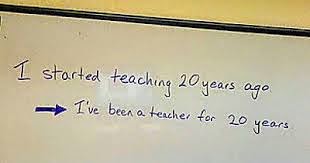 I started teaching 20 years ago
→ I've been a teacher for 20 years.